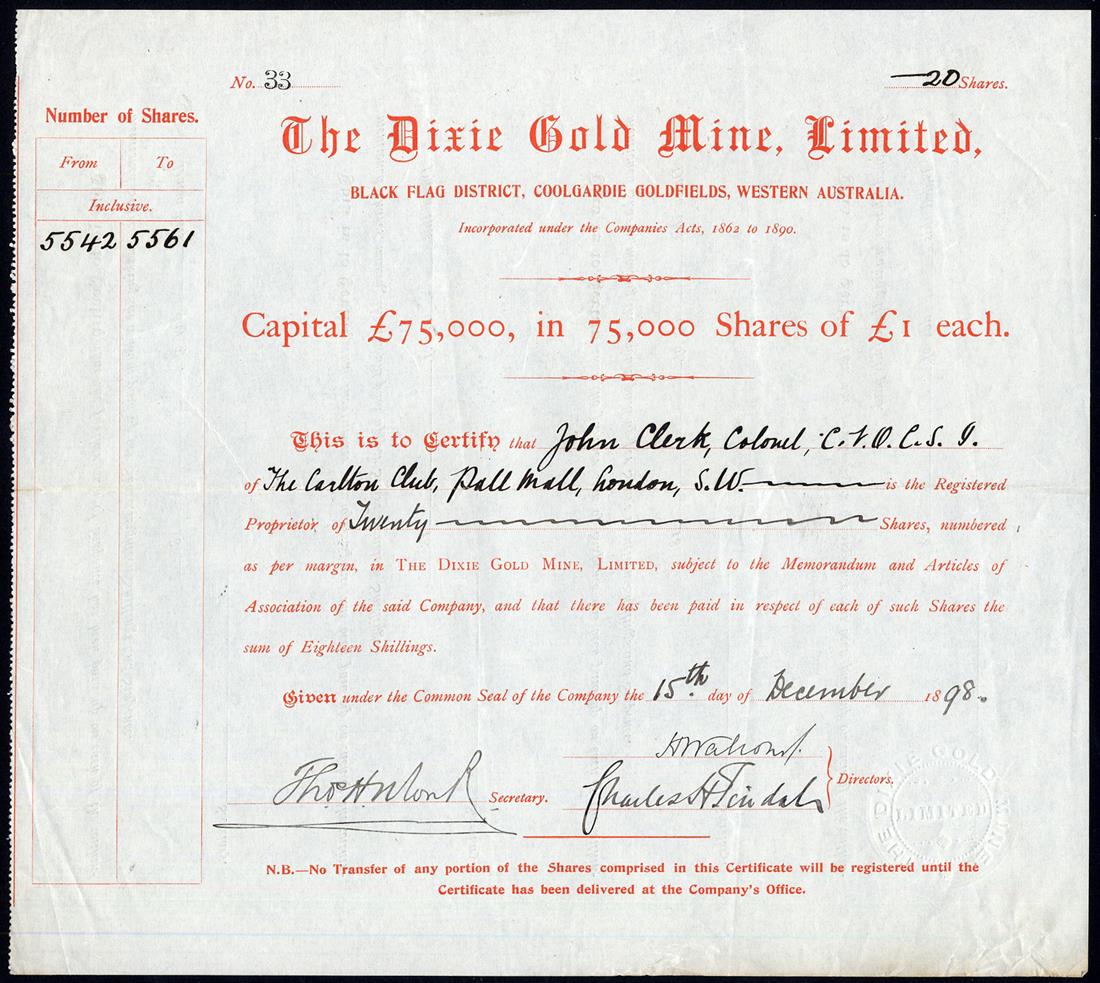 No. 33
—20 Shares.
Number of Shares.
From To
Inclusive.
5542 5561
The Dixie Gold Mine, Limited,
BLACK FLAG DISTRICT, COOLGARDIE GOLDFIELDS, WESTERN AUSTRALIA.
Incorporated under the Companies Acts, 1862 to 1890.
Capital £75,000, in 75,000 Shares of £1 each.
This is to Certify that John Clerk, Colonel, C.V.O. C.S.I.
of The Carlton Club, Pall Mall, London, S.W. is the Registered
Proprietor of Twenty Shares, numbered
as per margin, in THE DIXIE GOLD MINE, LIMITED, subject to the Memorandum and Articles of
Association of the said Company, and that there has been paid in respect of each of such Shares the
sum of Eighteen Shillings.
Given under the Common Seal of the Company the 15th day of December 1898.
Secretary.
Charles H Tindal
Directors.
THE DIXIE GOLD MINE LIMITED
N.B.—No Transfer of any portion of the Shares comprised in this Certificate will be registered until the
Certificate has been delivered at the Company's Office.